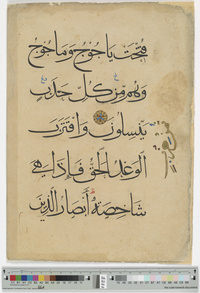 فُتِحَتْ يَاجُوجُ وَمَاجُوجُ
وَهُم مِّن كُلِّ حَدَبٍ
يَنسِلُونَ وَاقْتَرَبَ
الْوَعْدُ الْحَقُّ فَاِذَا هِيَ
شَاخِصَةٌ أَبْصَارُ الَّذِينَ